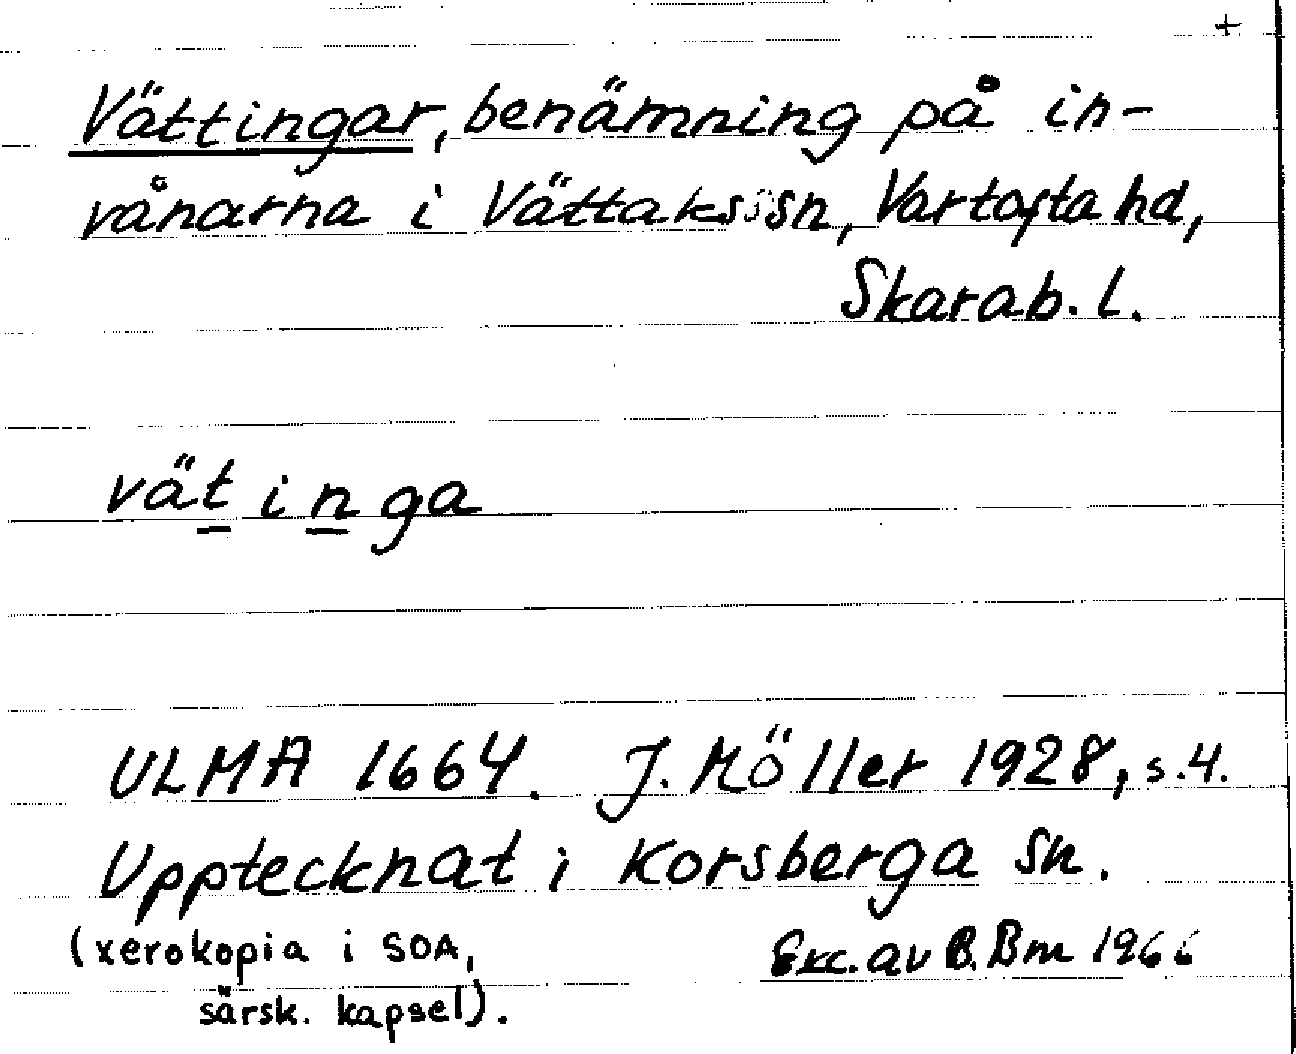 +
Vättingar, benämning på in-
vånarna i Vättaks sn, Vartofta hd,
Skarab. l.
vätinga
ULMA 1664. J. Möller 1928, s.4.
Upptecknat i Korsberga sn.
(xerokopia i SOA,
särsk. kapsel).
Exc. av B. Bm 1966